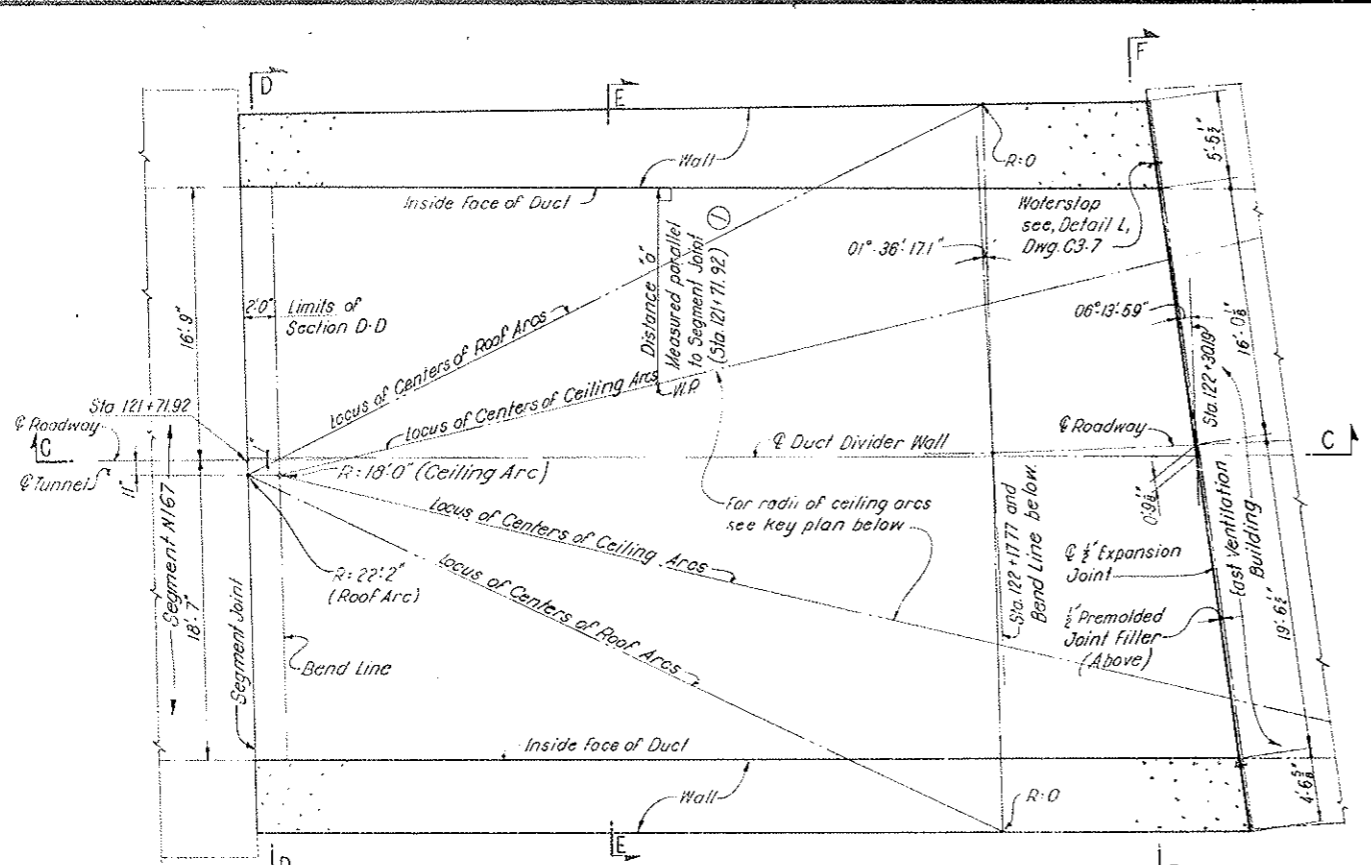 D
E
F
Wall
R=0
5'-6½"
Inside Face of Duct
Waterstop
see, Detail L,
Dwg. C3-7
01°-36'-17.1"
06°-13'-59"
2'-0"
Limits of
Section D-D
16'-9"
Distance "a"
Measured parallel
to Segment Joint
(Sta. 121+71.92)
1
W.P.
Locus of Centers of Roof Arcs
Locus of Centers of Ceiling Arcs
Sta. 122+30.19
Sta 121+71.92
℄ Roadway
C
℄ Tunnel
11"
R=18'-0" (Ceiling Arc)
℄ Duct Divider Wall
℄ Roadway
C
For radii of ceiling arcs
see key plan below
Locus of Centers of Ceiling Arcs
Locus of Centers of Roof Arcs
Segment N167
18'-7"
Segment Joint
R=22'-2"
(Roof Arc)
Bend Line
Sta. 122+17.77 and
Bend Line below.
℄ ½" Expansion
Joint
½" Premolded
Joint Filler
(Above)
East Ventilation
Building
19'-6½"
Inside Face of Duct
Wall
R=0
D
E